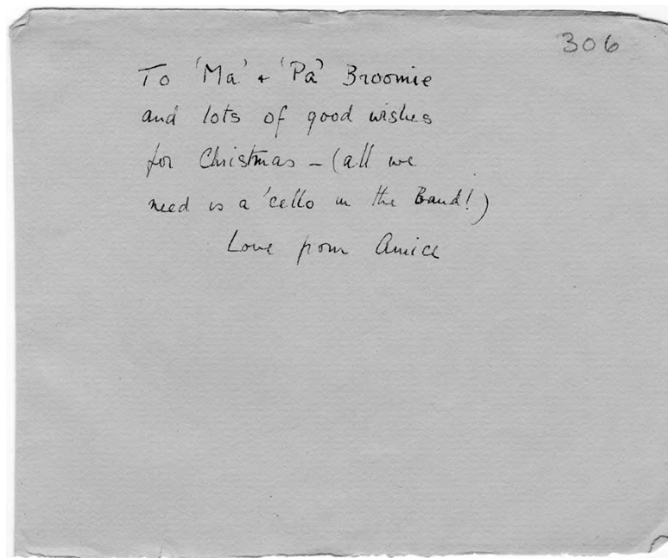 306
To 'Ma' + 'Pa' Broomie
and lots of good wishes
for Christmas – (all we
need is a 'cello in the Band!)
Love from Amice